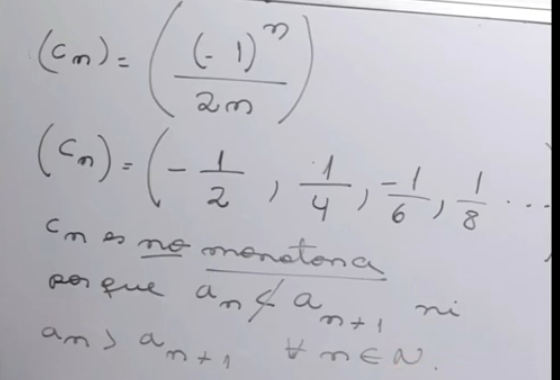 (cₙ) = ( (-1)ⁿ / 2n )
(cₙ) = ( - 1/2 , 1/4 , -1/6 , 1/8 ...
cₙ es no monotona
porque aₙ ≮ aₙ₊₁ ni
aₙ > aₙ₊₁ ∀ n ∈ N.